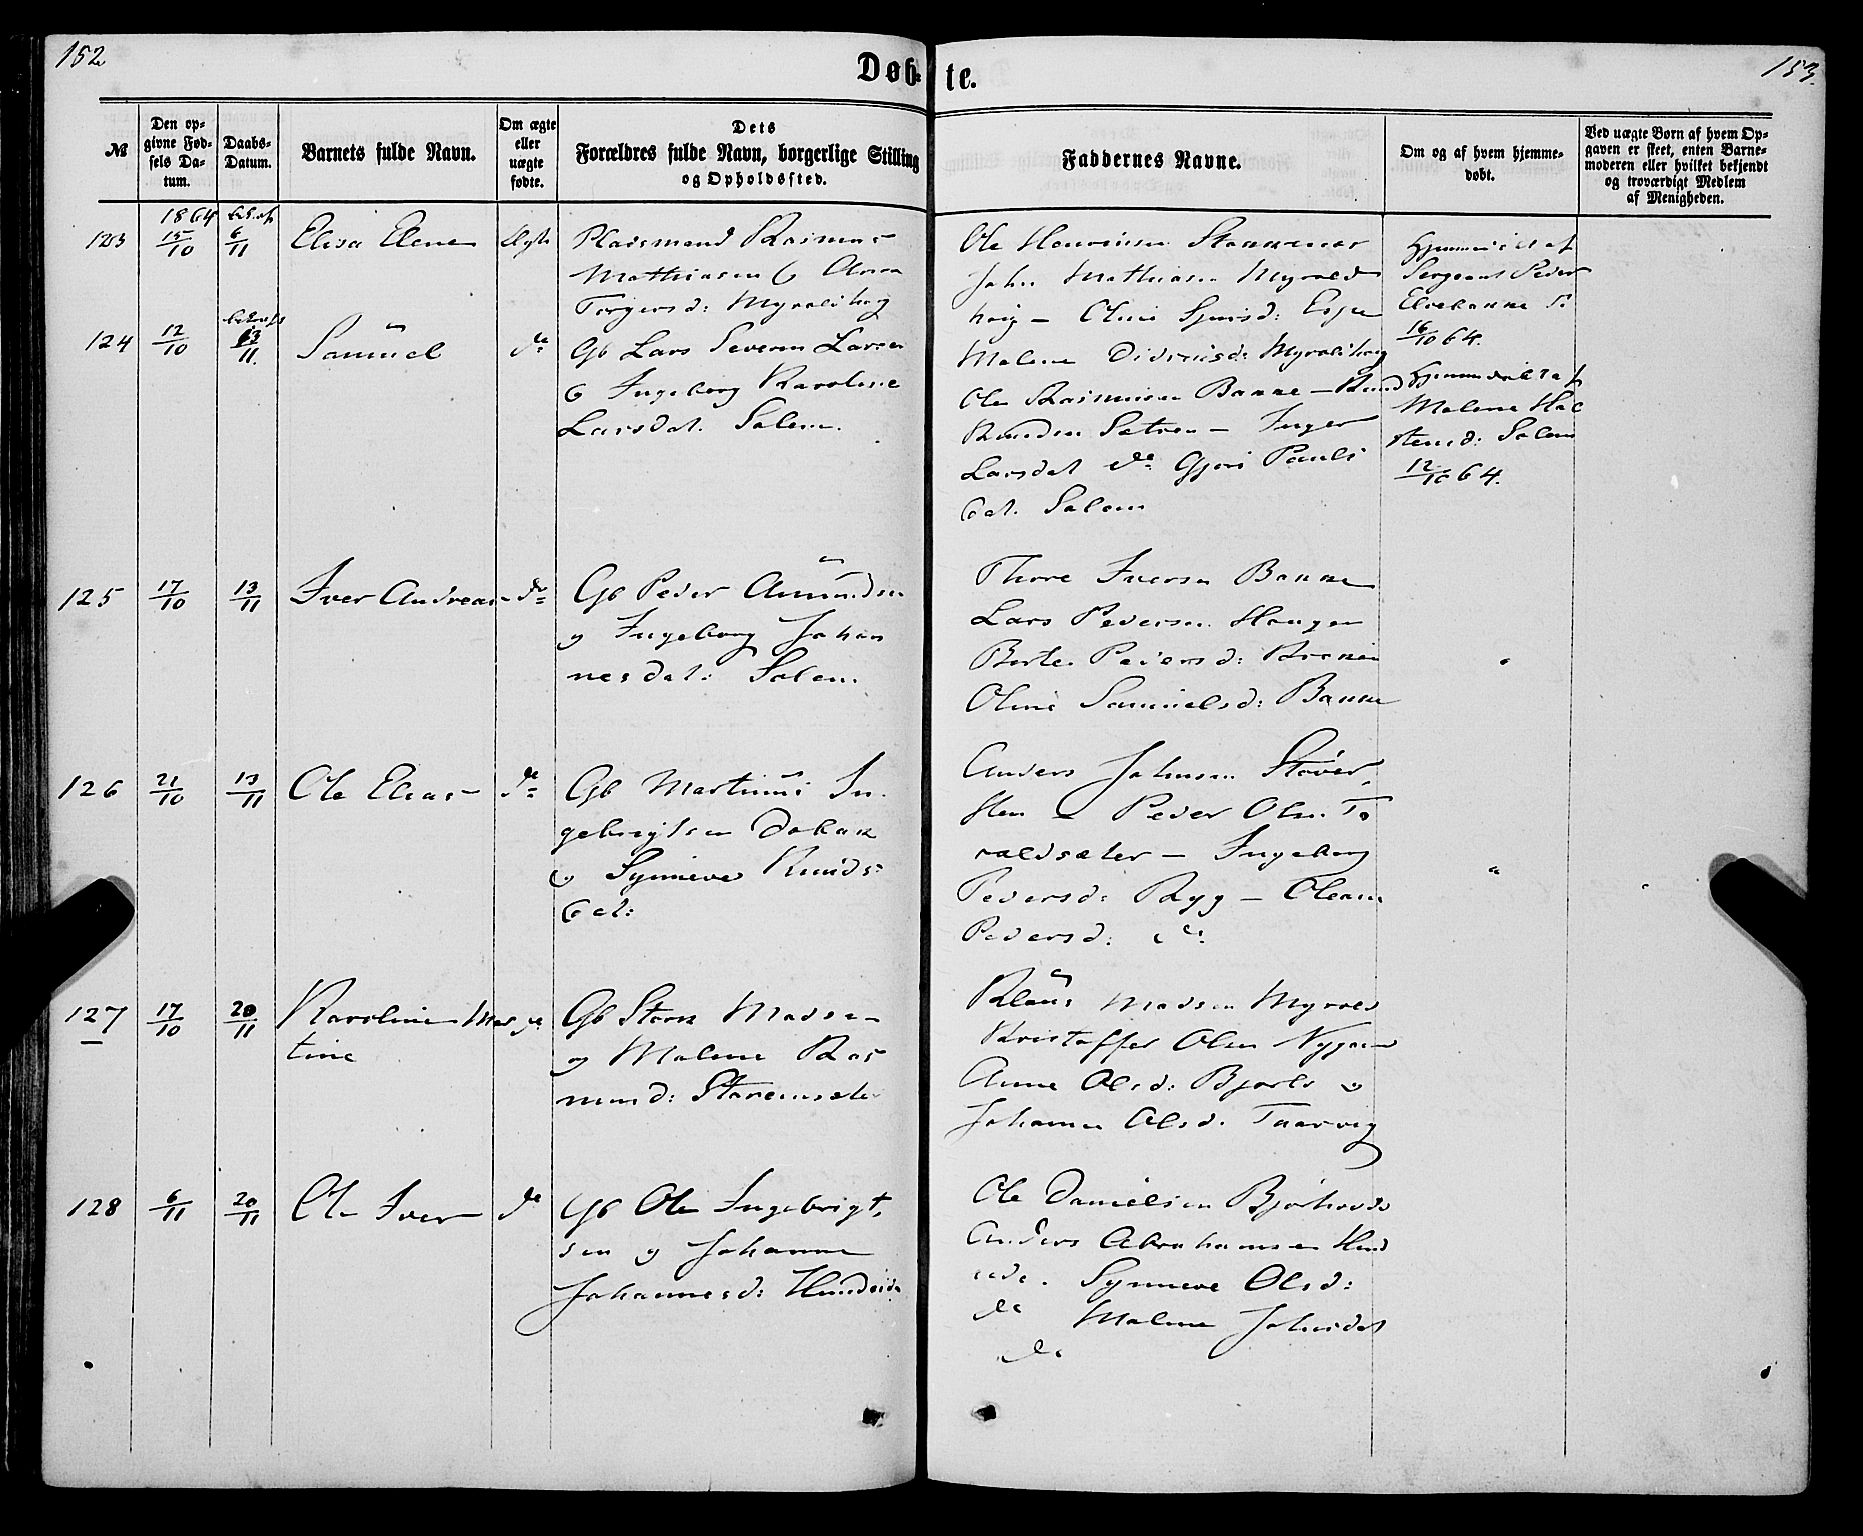 152
153.
Døb-
te.
№
Den op-
givne Fød-
sels Da-
tum.
Daabs-
Datum.
Barnets fulde Navn.
Om ægte
eller
uægte
fødte.
Dets
Forældres fulde Navn, borgerlige Stilling
og Opholdssted.
Faddernes Navne.
Om og af hvem hjemme-
døbt.
Ved uægte Børn af hvem Op-
gaven er skeet, enten Barne-
moderen eller hvilket bekjendt
og troværdigt Medlem
af Menigheden.
1864
123
15/10
6/11
Elisa Elene
Ægte
Pladsmand Rasmus
Mathiasen & Anna
Torgersd: Myroldhaug
Ole Henriksen
John Mathiasen Myrold
haug - Oline Sjursd: Espe
Malene Didriksd: Myroldhaug
Hjemmedøbt af
Sergeant Peder
Elvebakke d.
16/10 64.
124
12/10
13/11.
Samuel
do
Gb Lars Severin Larsen
& Ingeborg Karoline
Larsdat. Solem.
Ole Rasmusen Bakke - Knud
Knudsen Sætren - Inger
Larsdat do Gjøri Pauls
dat. Solem
Hjemmedøbt af
Malene Hal
stensd: Solem
12/10 64.
125
17/10
13/11
Iver Andreas
do
Gb Peder Amundsen
og Ingeborg Johan
nesdat: Solem.
Thore Iversen Bakke
Lars Pedersen Haugen
Berte Pedersd:
Oline Samuelsd: Bakke
126
21/10
13/11
Ole Elias
do
Gb Martinus In-
gebrigtsen Dokak
og Synneve Knuds-
dat:
Anders Johnsen Støver
sten - Peder Olsn. To
valdsæter - Ingeborg
Pedersd: Ryg - Oleane
Pedersd: do
"
127
17/10
20/11
Karoline Mar
tine
do
Gb Sterk Madsen
og Malene Ras
musd: Storemsæter
Klaus Madsen Myrold
Kristoffer Olsen Nygaard
Anne Olsd: Bjørlo og
Johanne Olsd. Taarvig
128
6/11
20/11
Ole Iver
do
Gb Ole Ingebrigt-
sen og Johanne
Johannesd: Hundeide
Ole Danielsen Bjørhovde
Anders Abrahamsen Hund
eide. Synneve Olsd:
do Malene Johnsdat
do